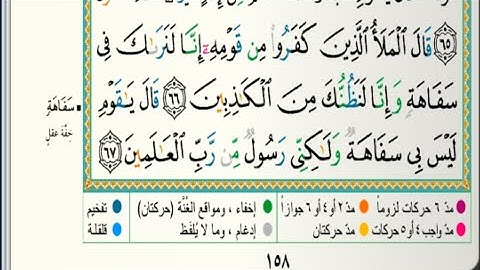 ۝٦٥ قَالَ الْمَلَأُ الَّذِينَ كَفَرُوا مِن قَوْمِهِ إِنَّا لَنَرَاكَ فِي
سَفَاهَةٍ وَإِنَّا لَنَظُنُّكَ مِنَ الْكَاذِبِينَ ۝٦٦ قَالَ يَا قَوْمِ
لَيْسَ بِي سَفَاهَةٌ وَلَٰكِنِّي رَسُولٌ مِّن رَّبِّ الْعَالَمِينَ ۝٦٧
سَفَاهَةٍ
خِفَّة عَقْلٍ
مدّ ٦ حركات لزوماً
مدّ ٢ أو ٤ أو ٦ جوازاً
إخفاء ، ومواقع الغُنَّة (حركتان)
تفخيم
مدّ واجب ٤ أو ٥ حركات
مدّ حركتان
إدغام ، وما لا يُلفَظ
قلقلة
١٥٨